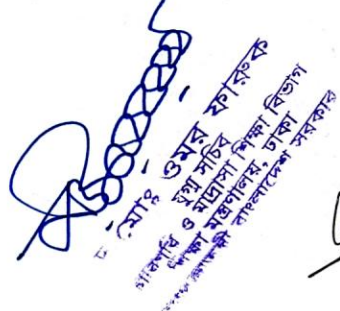 মোঃ ওমর ফারুক
যুগ্ম সচিব
কারিগরি ও মাদ্রাসা শিক্ষা বিভাগ
শিক্ষা মন্ত্রণালয়, ঢাকা
বাংলাদেশ সরকার